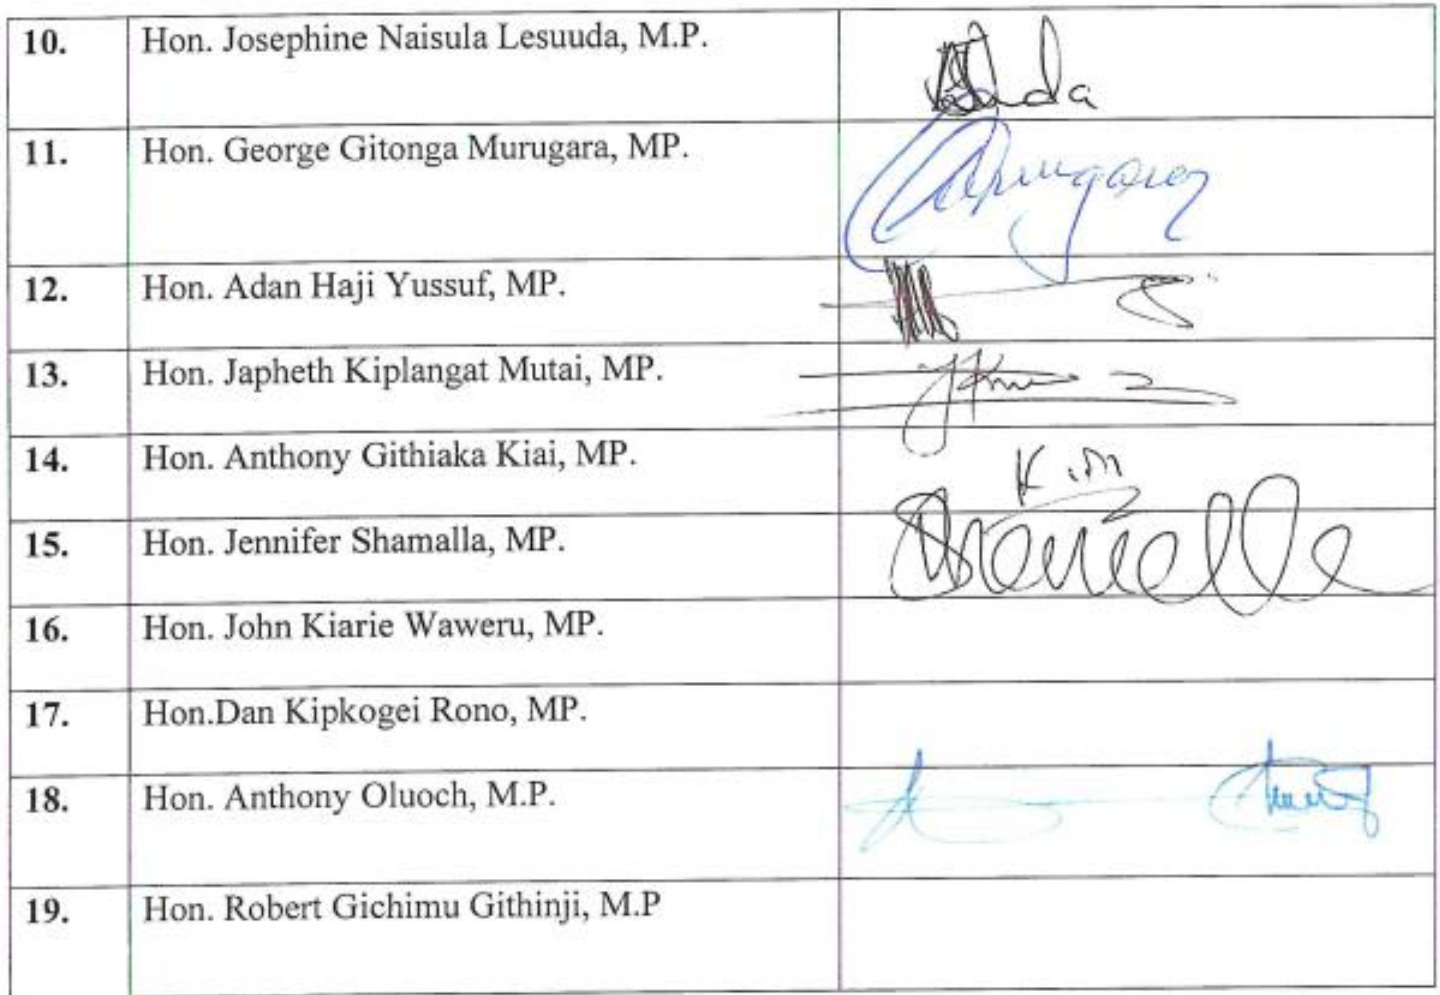 10. Hon. Josephine Naisula Lesuuda, M.P.
11. Hon. George Gitonga Murugara, MP.
12. Hon. Adan Haji Yussuf, MP.
13. Hon. Japheth Kiplangat Mutai, MP.
14. Hon. Anthony Githiaka Kiai, MP.
15. Hon. Jennifer Shamalla, MP.
16. Hon. John Kiarie Waweru, MP.
17. Hon.Dan Kipkogei Rono, MP.
18. Hon. Anthony Oluoch, M.P.
19. Hon. Robert Gichimu Githinji, M.P